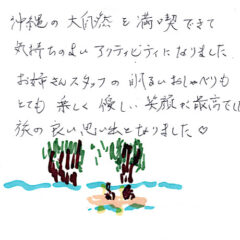 沖縄の大自然を満喫できて
気持ちのよいアクティビティになりました
お姉さんスタッフの明るいおしゃべりも
とても楽しく優しい笑顔が最高でし
後の良い思い出となりました♡